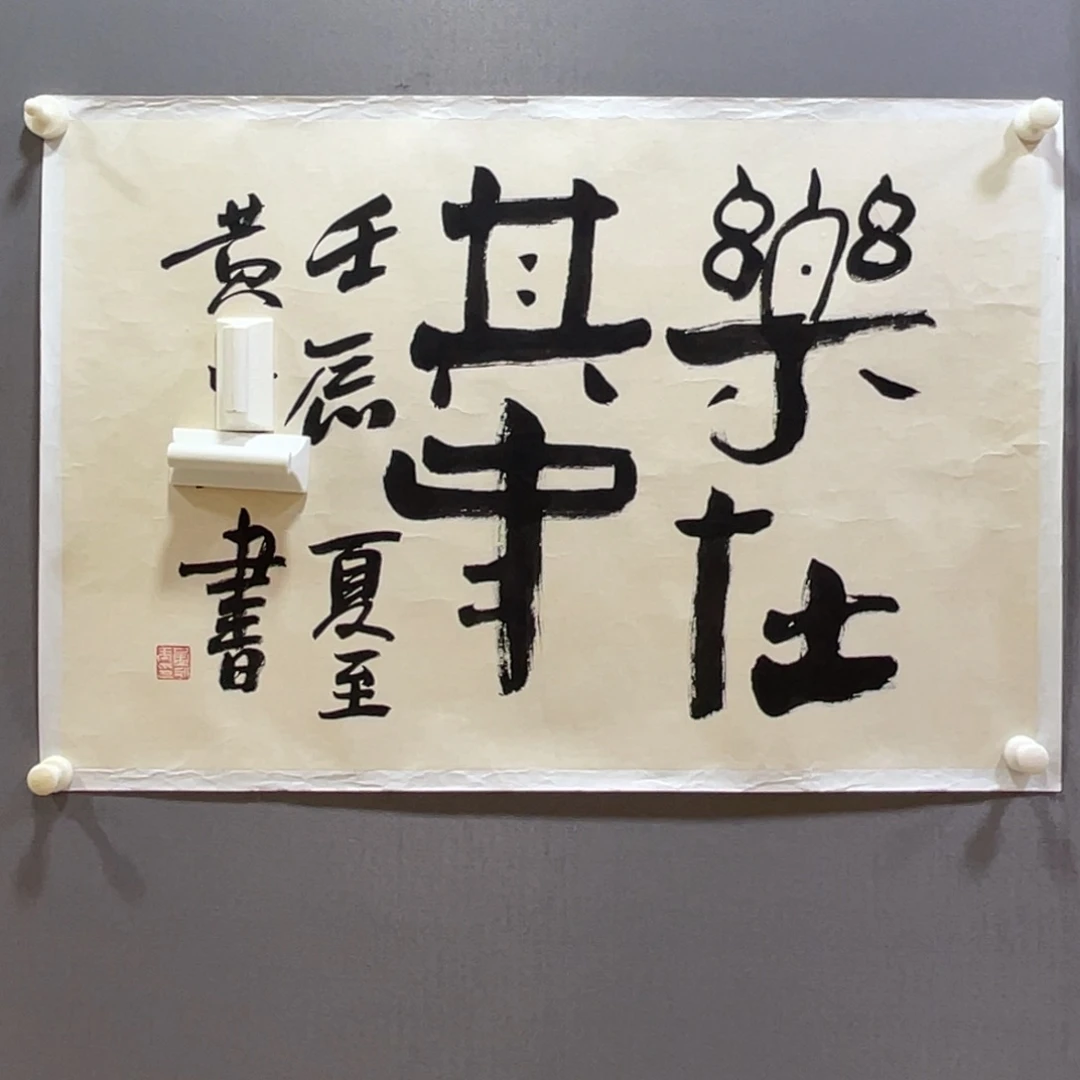 樂在
其中
壬辰夏至
黄書